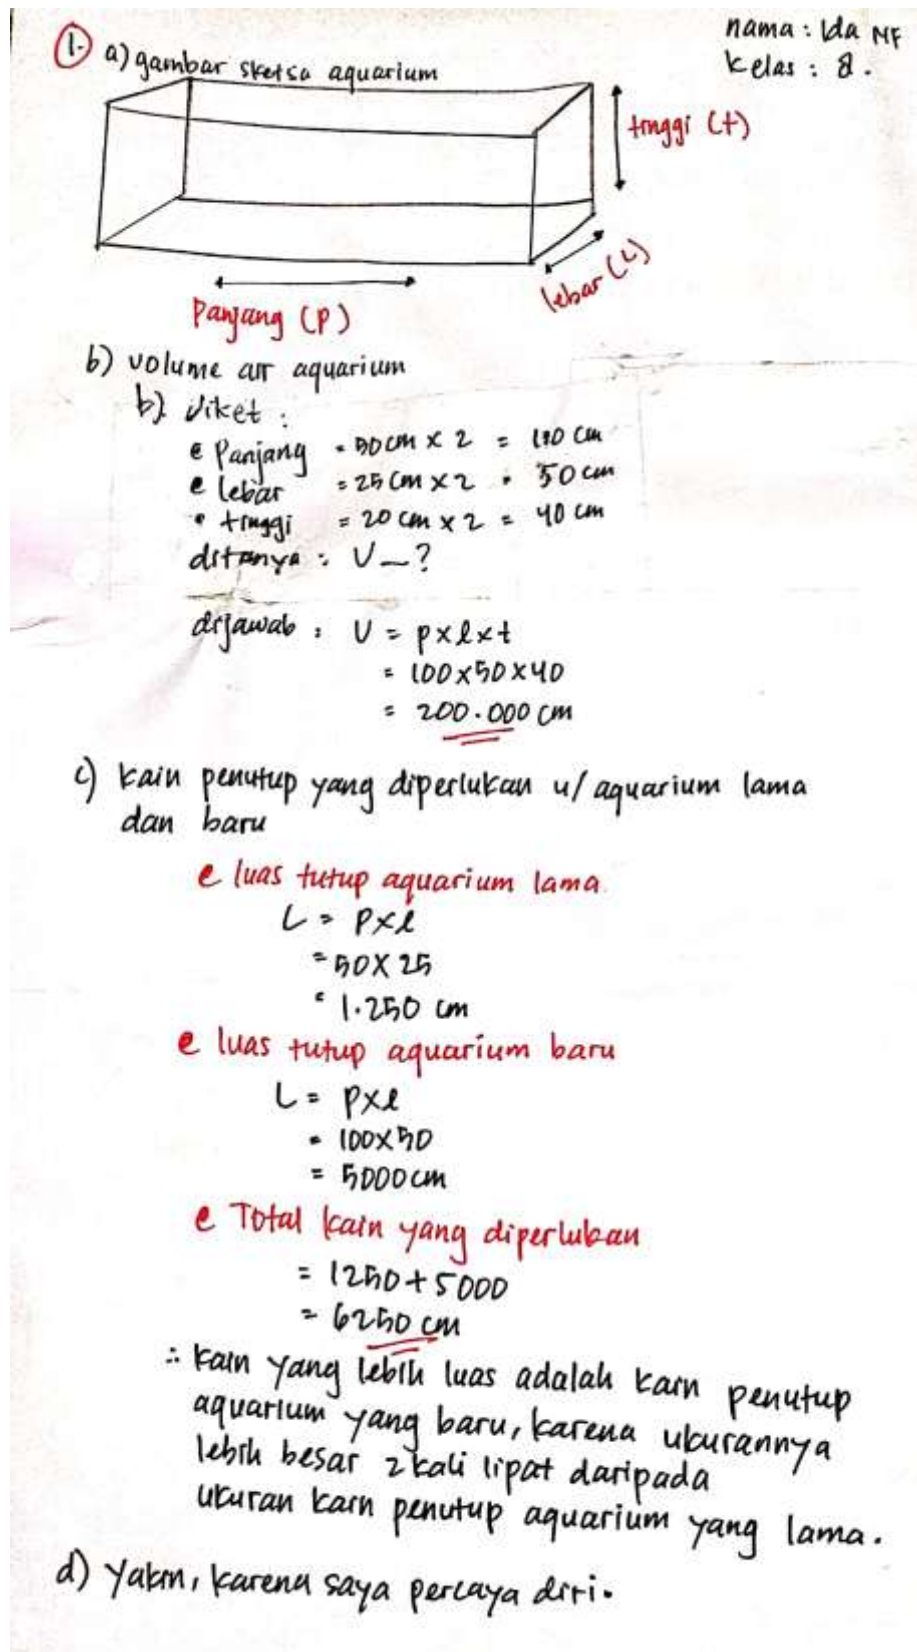 nama : Ida NF
kelas : 8.
1. a) gambar sketsa aquarium
tinggi (t)
lebar (L)
Panjang (P)
b) volume air aquarium
b). diket :
• Panjang = 50 cm x 2 = 100 cm
• lebar = 25 cm x 2 = 50 cm
• tinggi = 20 cm x 2 = 40 cm
ditanya : V_?
dijawab : V = p x l x t
= 100 x 50 x 40
= 200.000 cm
c) kain penutup yang diperlukan u/ aquarium lama
dan baru
• luas tutup aquarium lama.
L = P x l
= 50 X 25
= 1.250 cm
• luas tutup aquarium baru
L = P x l
= 100 x 50
= 5000 cm
• Total kain yang diperlukan
= 1250 + 5000
= 6250 cm
∴ kain yang lebih luas adalah kain penutup
aquarium yang baru, karena ukurannya
lebih besar 2 kali lipat daripada
ukuran kain penutup aquarium yang lama.
d) Yakin, karena saya percaya diri.